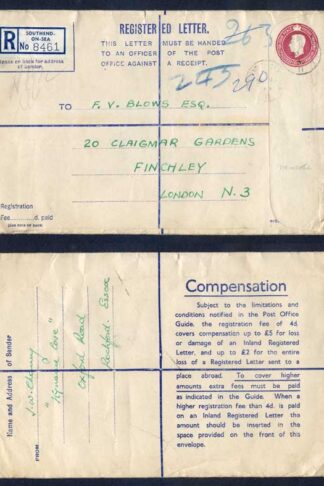 SOUTHEND-
ON-SEA
R No 8461
Space on back for address
of Sender.
REGISTERED LETTER.
THIS LETTER MUST BE HANDED
TO AN OFFICER OF THE POST
OFFICE AGAINST A RECEIPT.
263
245
290
TO F. V. BLOWS ESQ.
20 CLAIGMAR GARDENS
FINCHLEY
LONDON N. 3
Registration
Fee d. paid
Name and Address of Sender
FROM
"Kynance Cove"
Oxford Road
Rochford Essex
Compensation
Subject to the limitations and
conditions notified in the Post Office
Guide, the registration fee of 4d.
covers compensation up to £5 for loss
or damage of an Inland Registered
Letter, and up to £2 for the entire
loss of a Registered Letter sent to a
place abroad. To cover higher
amounts extra fees must be paid
as indicated in the Guide. When a
higher registration fee than 4d. is paid
on an Inland Registered Letter
the amount should be inserted in the
space provided on the front of this
envelope.